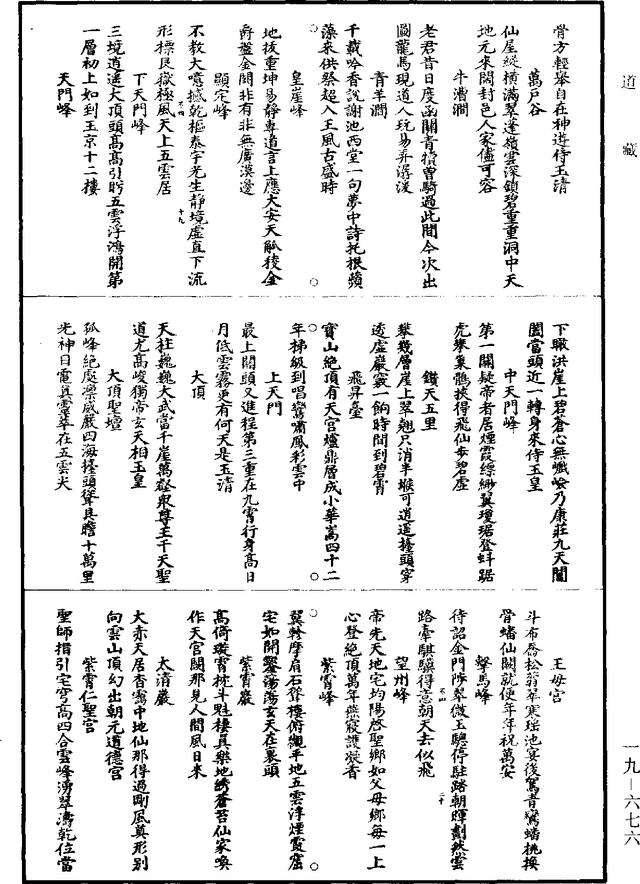 道藏
骨方輕舉自在神遊侍玉清
萬戶谷
仙屋縱橫滿翠蓬嶺雲深鎖碧重重洞中天
地元來闊封邑人家儘可容
牛漕澗
老君昔日度函關青犢曾騎過此間今次出
圖龍馬現道人玩易弄潺湲
青羊澗
千載吟香說謝池西堂一句夢中詩托根蘋
藻來供祭超入王風古盛時
皇崖峰
地拔重坤易靜專道言上應大安天觚稜金
爵盤金闕非有非無廣漠邊
顯定峰
不教大噫撼乾樞泰宇光生靜境虛直下流
形標艮嶽極風天上五雲居
下天門峰
三境逍遙大頂頭高高引眄五雲浮鴻開第
一層初上如到玉京十二樓
天門峰
下瞰洪崖上君蒼心無巇嶮乃康莊九天閶
闔當頭近一轉身來侍玉皇
中天門峰
第一關疑帝者居煙霞縹緲翼瓊琚登
虎攀巢鶻挾得飛仙步碧虛
鑽天五里
攀幾層崖上翠翹只消半堠可逍遙擡頭穿
透虛巖竅一餉時間到碧霄
飛昇臺
寶山絕頂有天宮爐鼎層成小華嵩四十二
年梯級到唱鸞嘯鳳彩雲中
上天門
最上關頭又進程第三重在九霄行身高日
月低雲霧更有何天是玉清
大頂
天柱巍巍大武當千崖萬壑衆尊王千天聖
道尤高峻獨帝玄天相玉皇
大頂聖壇
孤峰絕處凜威嚴四海擡頭聳具瞻十萬里
光神日電真靈萃在五雲尖
王母宮
斗布喬松翁翠寒瑶池宴後駕青鸞蟠桃換
骨蟠仙闕就使年年祝萬安
繫馬峰
待詔金門陟翠微玉驄停駐踏朝暉劃然雲
路牽騏驥得意朝天去似飛
望州峰
帝先天地宅均陽啓聖鄉如父母鄉每一上
心登絕頂萬年燕寢護凝香
紫霄峰
翼軫摩肩石聳棲俯觀平地五雲浮煙霞窟
宅如開鑿蕩蕩玄天在裏頭
紫霄巖
高倚璇霄枕斗魁棲真樂地綉蒼苔仙家喚
作天宮闕那見人間風日來
太清巖
大赤天居杳靄中地仙那得過剛風真形別
向雲山頂幻出朝元道德宮
紫霄仁聖宮
聖師指引宅穹高四合雲峰湧翠濤乾位當
十九
二十
一九－六七六